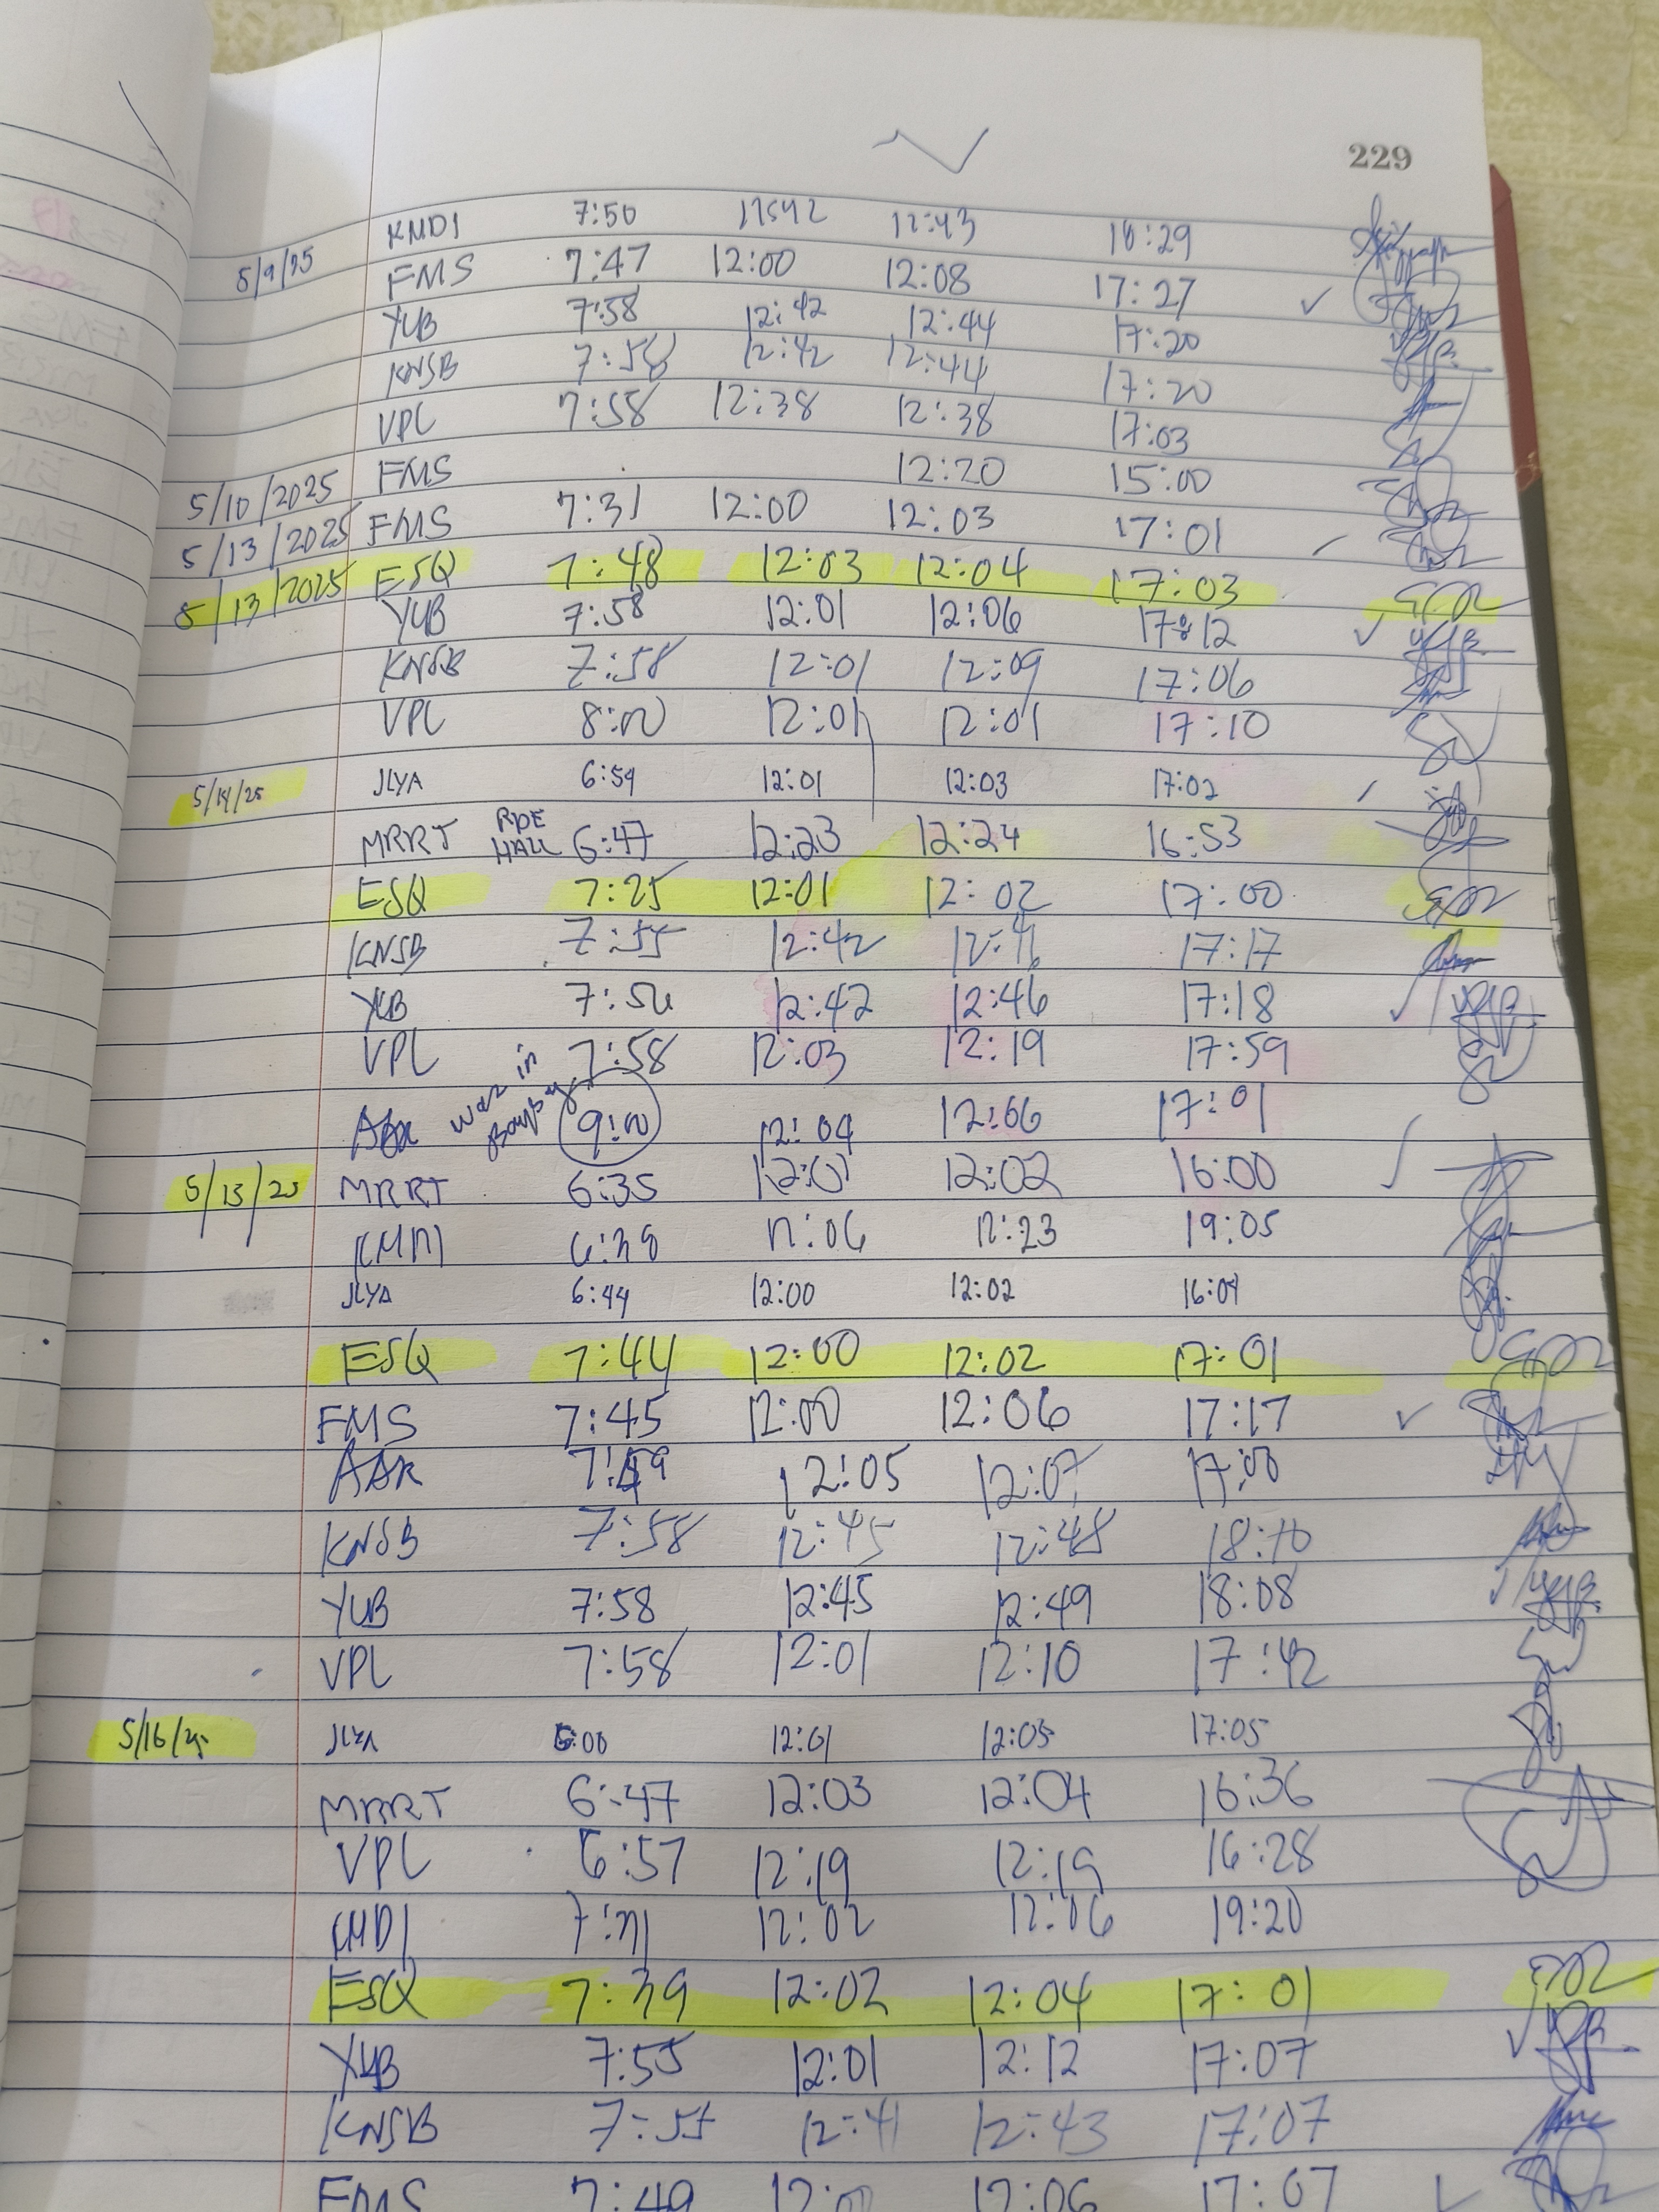 229
KMDI 7:50 12:43 16:29
5/9/25 FMS 7:47 12:00 12:08 17:27
YUB 7:58 12:42 12:44 17:20
KNSB 7:58 12:42 12:44 17:20
VPL 7:58 12:38 12:38 17:03
5/10/2025 FMS 12:20 15:00
5/13/2025 FMS 7:31 12:00 12:03 17:01
5/13/2025 ESQ 7:48 12:03 12:04 17:03
YUB 7:58 12:01 12:06 17:12
KNSB 7:58 12:01 12:09 17:06
VPL 8:00 12:01 12:01 17:10
5/14/25 JLYA 6:59 12:01 12:03 17:02
MRRT RDE HALL 6:47 12:23 12:24 16:53
ESQ 7:25 12:01 12:02 17:00
KNSB 7:55 12:42 12:46 17:17
YUB 12:42 12:46 17:18
VPL 7:58 12:03 12:19 17:59
was in 9:00 12:04 12:06 17:01
5/15/25 MRRT 6:35 12:01 12:02 16:00
KMDI 6:38 12:06 12:23 19:05
JLYA 6:44 12:00 12:02 16:04
ESQ 7:44 12:00 12:02 17:01
FMS 7:45 12:00 12:06 17:17
12:05 12:07 17:00
KNSB 7:58 12:45 12:48 18:10
YUB 7:58 12:45 12:49 18:08
VPL 7:58 12:01 12:10 17:42
5/16/25 JLYA 12:01 12:05 17:05
MRRT 6:47 12:03 12:04 16:36
VPL 6:57 12:19 12:19 16:28
KMDI 12:02 12:06 19:20
ESQ 7:39 12:02 12:04 17:01
YUB 7:55 12:01 12:12 17:07
KNSB 7:55 12:41 12:43 17:07
FMS 7:49 12:00 12:06 17:07